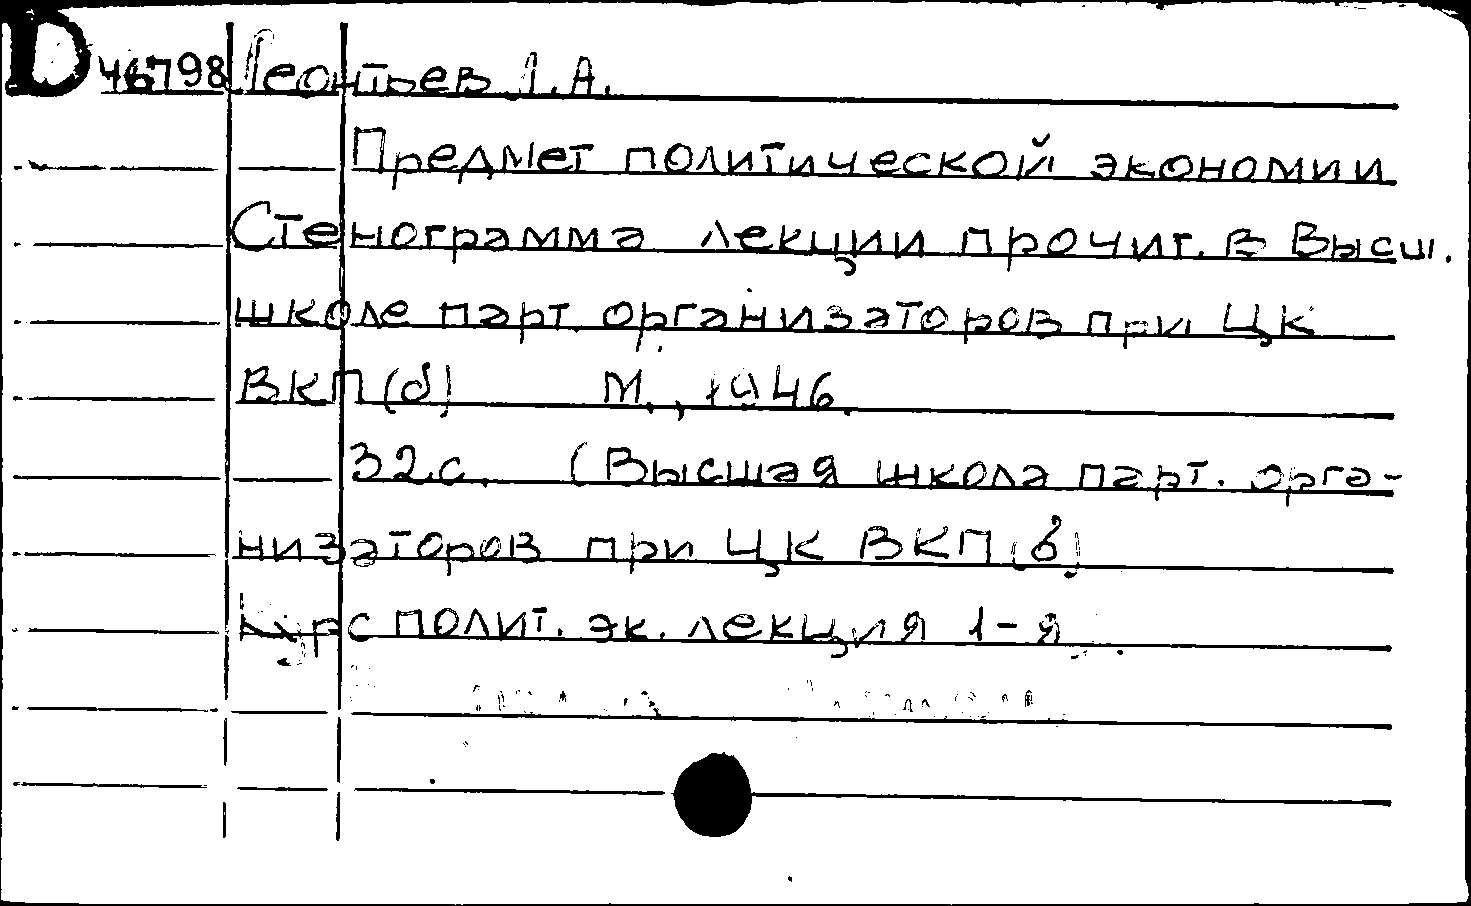 D 46798 Леонтьев Л.А.
Предмет политической экономии
Стенограмма лекции прочит. в Высш.
школе парт. организаторов при ЦК
ВКП(б) М., 1946.
32.с. (Высшая школа парт. орга-
низаторов при ЦК ВКП(б)
Курс полит. эк. лекция 1-я